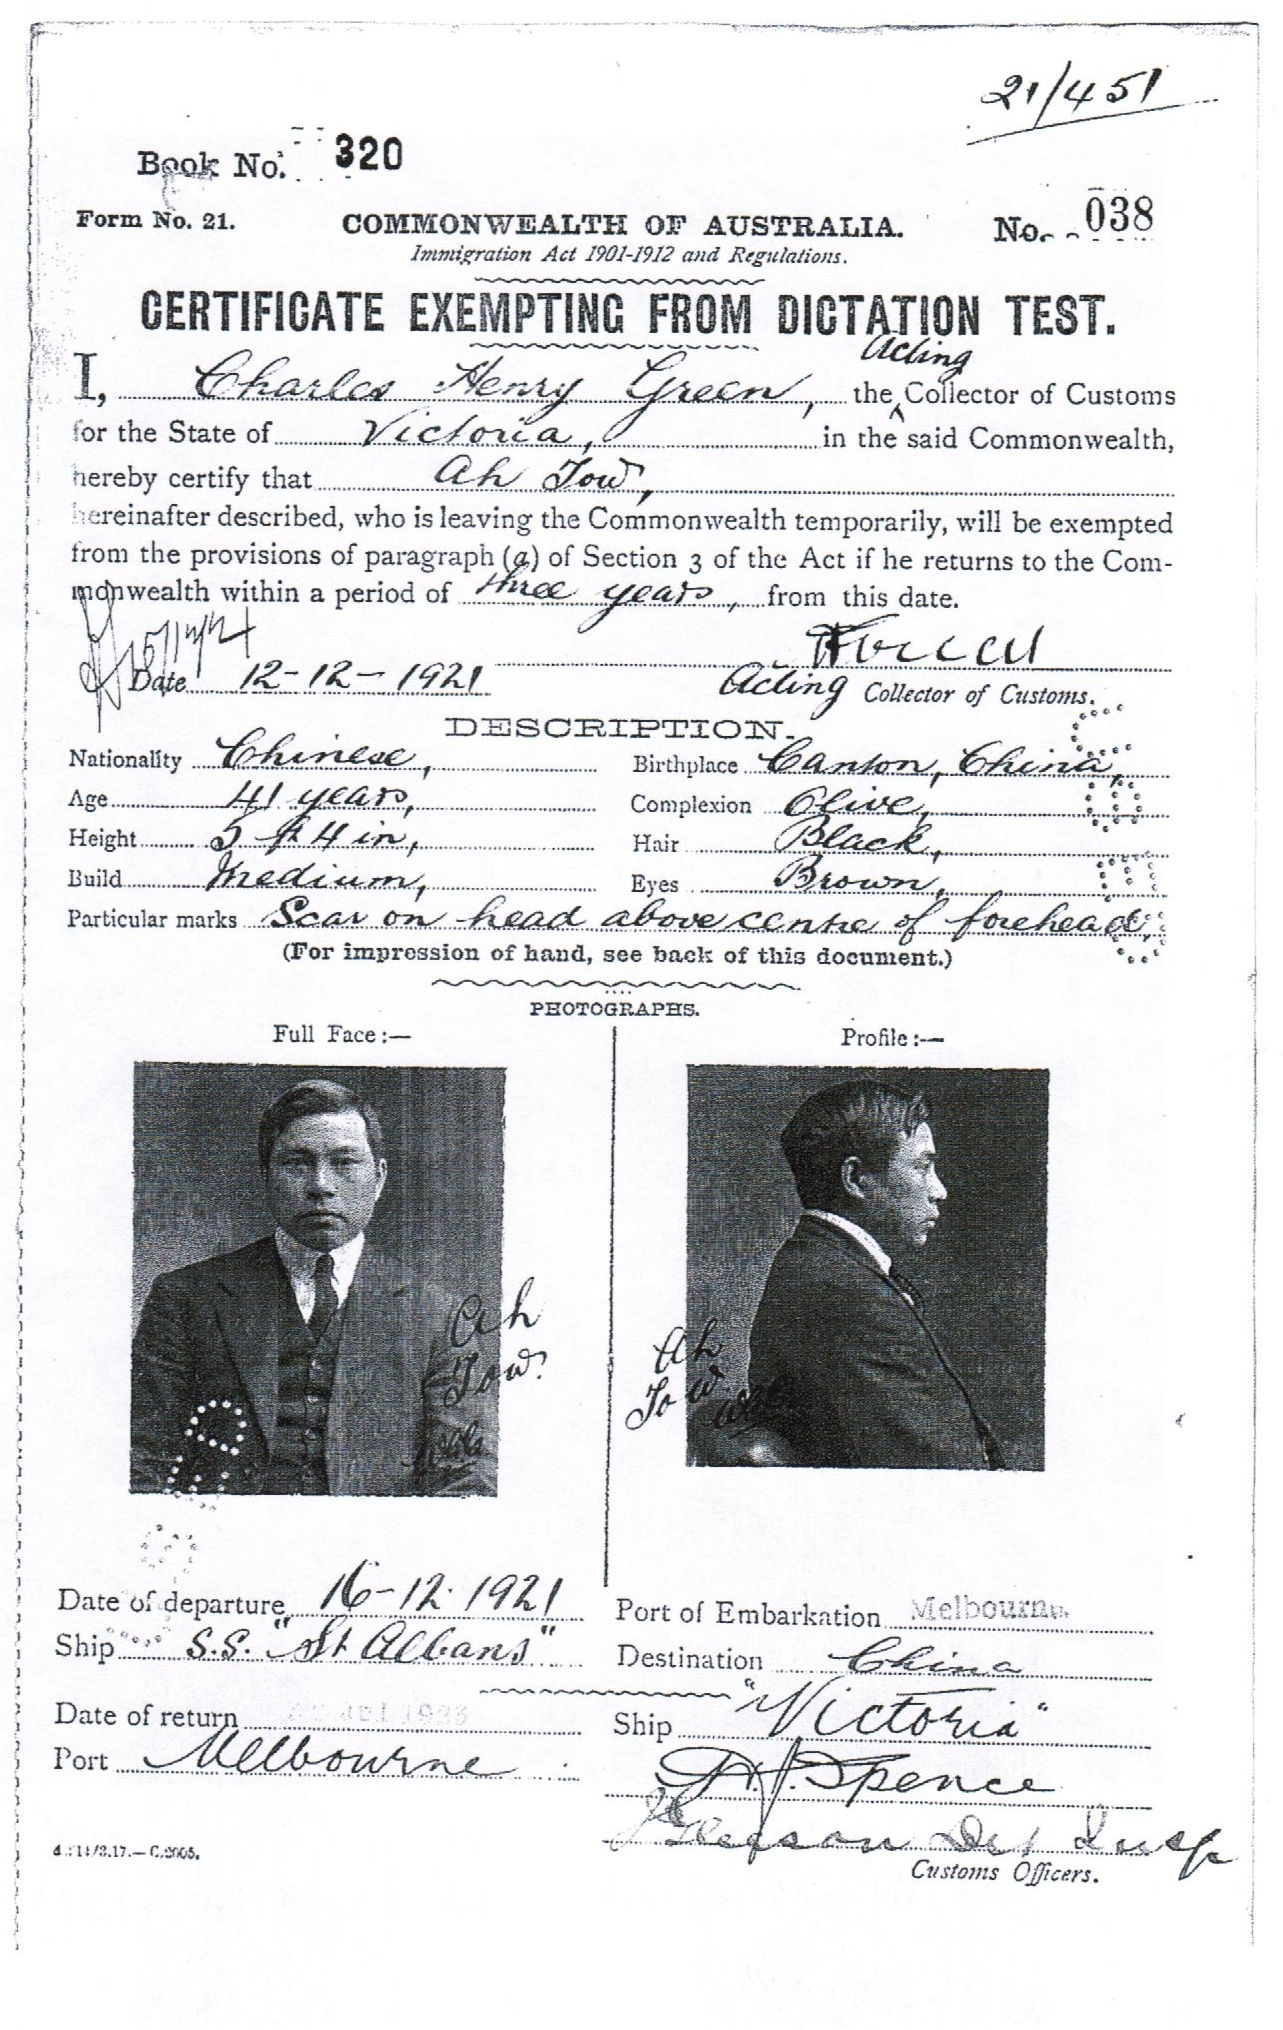 21/451
Book No. 320
Form No. 21. COMMONWEALTH OF AUSTRALIA. No. 038
Immigration Act 1901-1912 and Regulations.
CERTIFICATE EXEMPTING FROM DICTATION TEST.
Acting
I, Charles Henry Green, the Collector of Customs
for the State of Victoria, in the said Commonwealth,
hereby certify that Ah Tow,
hereinafter described, who is leaving the Commonwealth temporarily, will be exempted
from the provisions of paragraph (a) of Section 3 of the Act if he returns to the Com-
monwealth within a period of three years, from this date.
Date 12-12-1921 Acting Collector of Customs.
DESCRIPTION.
Nationality Chinese, Birthplace Canton, China,
Age 41 years, Complexion Olive,
Height 5 ft 4 in, Hair Black,
Build Medium, Eyes Brown,
Particular marks Scar on head above centre of forehead,
(For impression of hand, see back of this document.)
PHOTOGRAPHS.
Full Face:— Profile:—
Ah
Tow
Ah
Tow
Date of departure 16-12-1921 Port of Embarkation Melbourne.
Ship S.S. "St Albans" Destination China
Date of return Ship "Victoria"
Port Melbourne
Spence
Customs Officers.